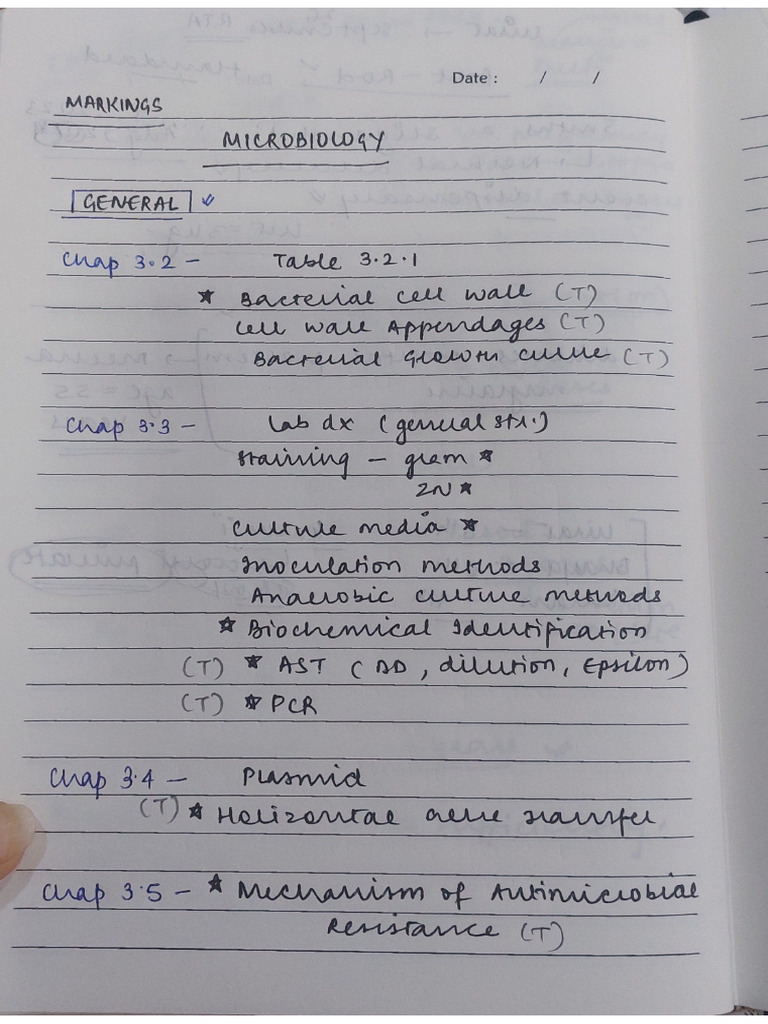 Date : / /
MARKINGS
MICROBIOLOGY
GENERAL
Chap 3.2 - Table 3.2.1
★ Bacterial cell wall (T)
Cell wall Appendages (T)
Bacterial Growth curve (T)
Chap 3.3 - Lab dx (general str.)
staining - gram ★
ZN ★
Culture media ★
Inoculation methods
Anaerobic culture methods
★ Biochemical Identification
(T) ★ AST (DD, dilution, Epsilon)
(T) ★ PCR
Chap 3.4 - Plasmid
(T) ★ Horizontal Gene transfer
Chap 3.5 - ★ Mechanism of Antimicrobial
Resistance (T)